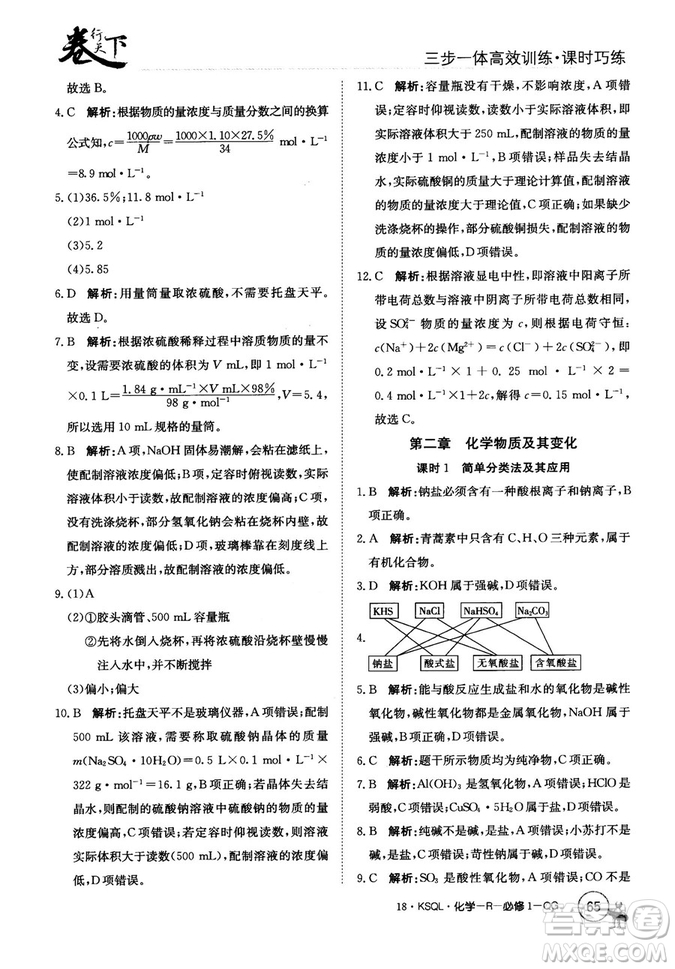 卷行天下
三步一体高效训练·课时巧练
故选 B。
4. C 解析:根据物质的量浓度与质量分数之间的换算
公式知,c=1000ρw/M=1000×1.10×27.5%/34 mol·L⁻¹
=8.9 mol·L⁻¹
5. (1)36.5%;1 mol·L⁻¹
(2)1 mol·L⁻¹
(3)5.2
(4)5.85
6. D 解析:用量筒量取浓硫酸,不需要托盘天平。
故选 D。
7. B 解析:浓硫酸稀释过程中溶质物质的量不
变,设需要浓硫酸的体积为 V,则:1 mol·L⁻¹
×0.1 L=1.84 g·mL⁻¹×V×98%/98 g·mol⁻¹ V=5.4,
所以选用 10 mL 规格的量筒。
8. B 解析:A 项,NaOH 固体易潮解,应放在滤纸上,
使配制溶液浓度偏低;B 项,定容时俯视读数,实际
溶液体积小于配制溶液体积,浓度偏大;C 项,
没有洗涤烧杯,部分氢氧化钠会粘在烧杯内壁,故
使配制溶液浓度偏低;D 项,玻璃棒靠在刻度线以
上,部分溶质损失,使配制的溶液的浓度偏低。
9. (1)A
(2)①胶头滴管、500 mL 容量瓶
②先将水倒入烧杯,再将浓硫酸沿烧杯壁慢慢
注入水中,并不断搅拌
(3)偏小;偏大
10. B 解析:托盘天平不是玻璃仪器,A 项错误;配制
500 mL 该溶液,需要称取硫酸钠晶体的质量
m(Na₂SO₄·10H₂O)=0.1 mol·L⁻¹×0.5 L×
322 g·mol⁻¹=16.1 g,B 项正确;若芒硝晶体失去结
晶水,则实际称取的硫酸钠的质量偏大,所配溶液
浓度偏高,C 项错误;若定容时俯视刻度线,则溶液
实际体积小于所需体积(500 mL),所配溶液浓度
偏大,D 项错误。
11. C 解析:容量瓶没有干燥,不影响浓度,A 项错
误;定容仰视读数,溶液体积大于 250 mL,配制溶
液的物质的量浓度小于 1 mol·L⁻¹;样品失去部
分结晶水,实际硫酸铜的质量大于理论计算值,配
制溶液的物质的量浓度大于理论值,C 项正确;没有
洗涤烧杯,部分硫酸铜损失,配制溶液的物质的量
浓度偏低,D 项错误。
12. C 解析:根据溶液显电中性,即溶液中阳离子所
带电荷总数与溶液中阴离子所带电荷总数相等,
设 SO₄²⁻ 物质的量浓度为 c,则根据电荷守恒:
c(Na⁺)+2c(Mg²⁺)=c(Cl⁻)+2c(SO₄²⁻),即
0.2 mol·L⁻¹×1+0.25 mol·L⁻¹×2=
0.4 mol·L⁻¹×1+c×2,解得 c=0.15 mol·L⁻¹,
故选 C。
第二章 化学物质及其变化
课时 1 简单分类法及其应用
1. B 解析:钠盐必须含有一种酸根离子和钠离子,B
项正确。
2. A 解析:青蒿素中只含有 C、H、O 三种元素,属于
有机化合物。
3. D 解析:KOH 属于强碱,D 项错误。
KHS NaCl NaHSO₄ Na₂CO₃
4.
钠盐 酸式盐 无氧酸盐 含氧酸盐
5. B 解析:能与酸反应生成盐和水的氧化物是碱性
氧化物,B 项正确。
6. C 解析:题干所示物质均为纯净物,C 项正确。
7. B 解析:Al(OH)₃ 是氢氧化物,A 项错误;HClO 是
弱酸,C 项错误;CuSO₄·5H₂O 为纯净物,D 项错误。
8. B 解析:纯碱不是碱,是盐,A 项错误;小苏打不是
碱,是盐,C 项错误;苛性钠不是碱性氧化物,D 项错误。
9. C 解析:SO₃ 是酸性氧化物,A、B、D 项错误。
18·KSQL·化学-R-必修 1-QG 65
MXQE.COM